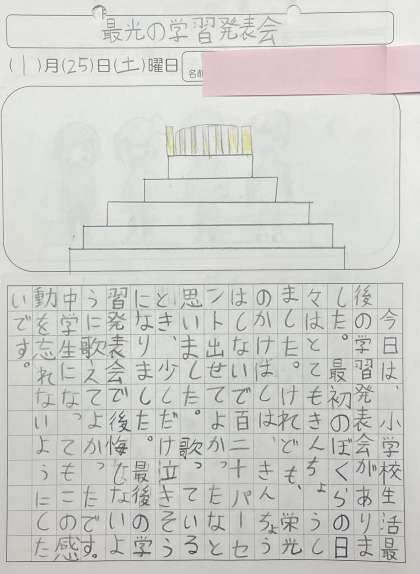 最光の学習発表会
(1)月(25)日(土)曜日
名前
今日は、小学校生活最
後の学習発表会がありま
した。最初のぼくらの日
々はとてもきんちょうし
ました。けれども、栄光
のかけはしは、きんちょう
はしないで百二十パーセ
ント出せてよかったなと
思いました。歌っている
とき、少しだけ泣きそう
になりました。最後の学
習発表会で後悔しないよ
うに歌えてよかったです。
中学生になってもこの感
動を忘れないようにした
いです。